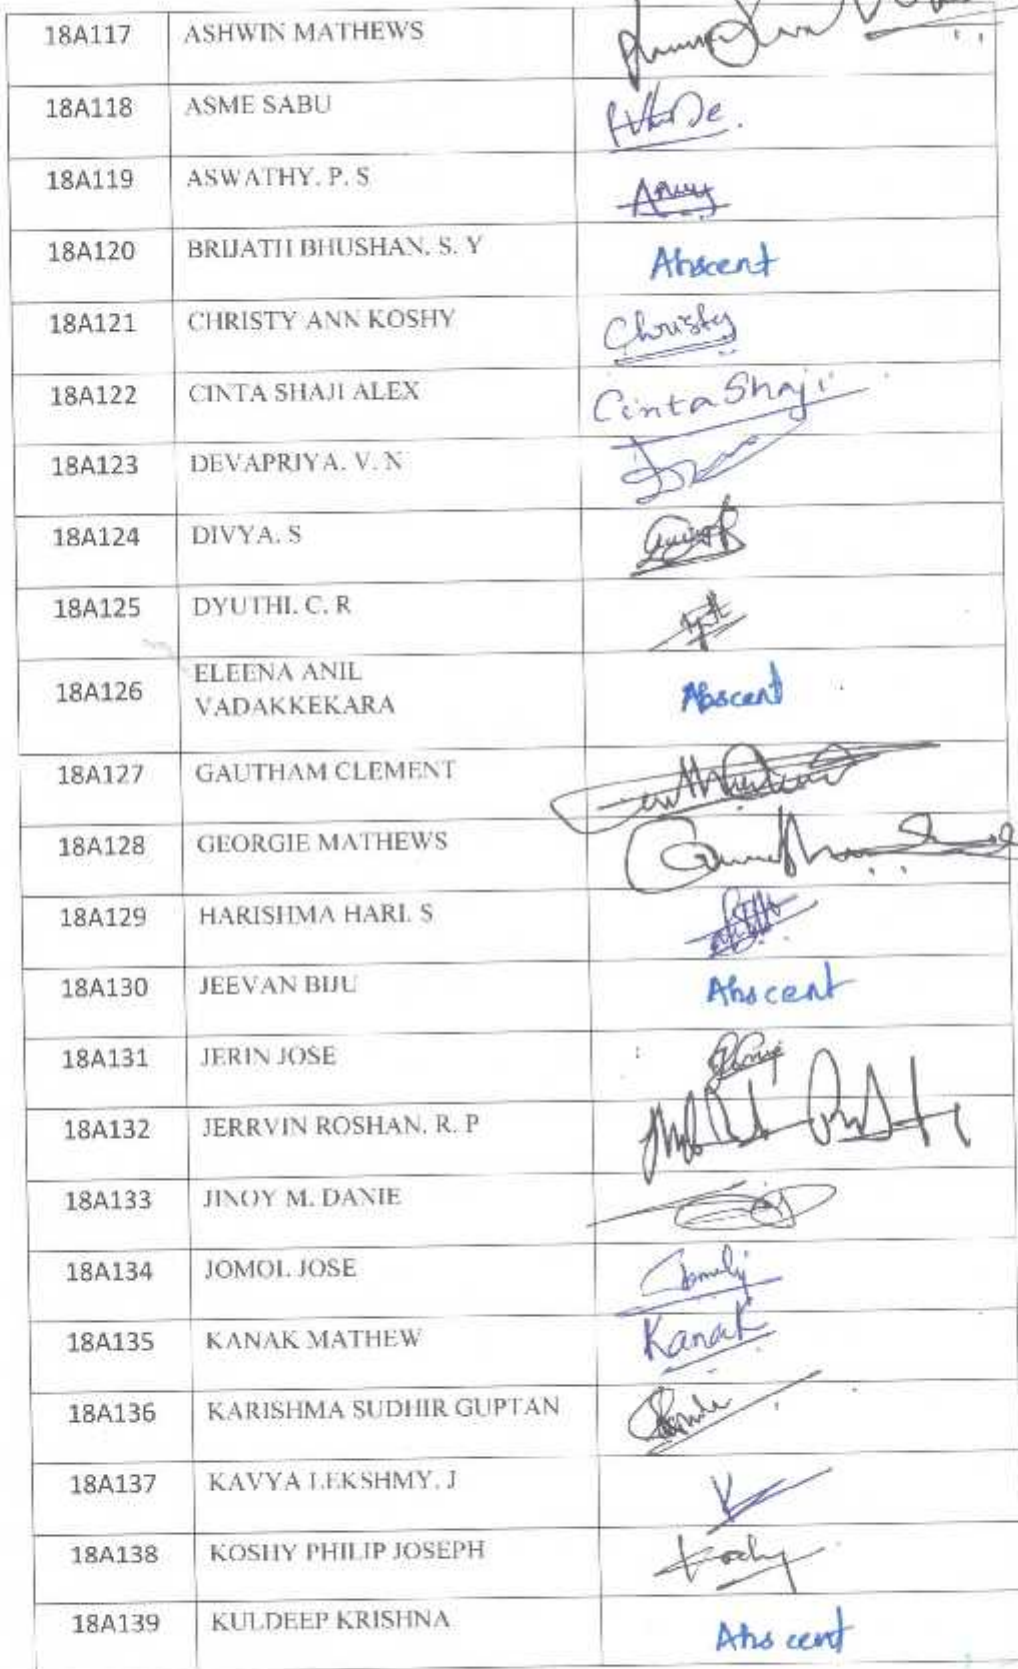 18A117 ASHWIN MATHEWS
18A118 ASME SABU
18A119 ASWATHY. P. S
18A120 BRIJATH BHUSHAN. S. Y Abscent
18A121 CHRISTY ANN KOSHY Christy
18A122 CINTA SHAJI ALEX Cinta Shaji
18A123 DEVAPRIYA. V. N
18A124 DIVYA. S
18A125 DYUTHI. C. R
18A126 ELEENA ANIL
VADAKKEKARA Abscent
18A127 GAUTHAM CLEMENT
18A128 GEORGIE MATHEWS
18A129 HARISHMA HARI. S
18A130 JEEVAN BIJU Abscent
18A131 JERIN JOSE
18A132 JERRVIN ROSHAN. R. P
18A133 JINOY M. DANIE
18A134 JOMOL JOSE
18A135 KANAK MATHEW Kanak
18A136 KARISHMA SUDHIR GUPTAN
18A137 KAVYA LEKSHMY. J
18A138 KOSHY PHILIP JOSEPH Koshy
18A139 KULDEEP KRISHNA Abscent